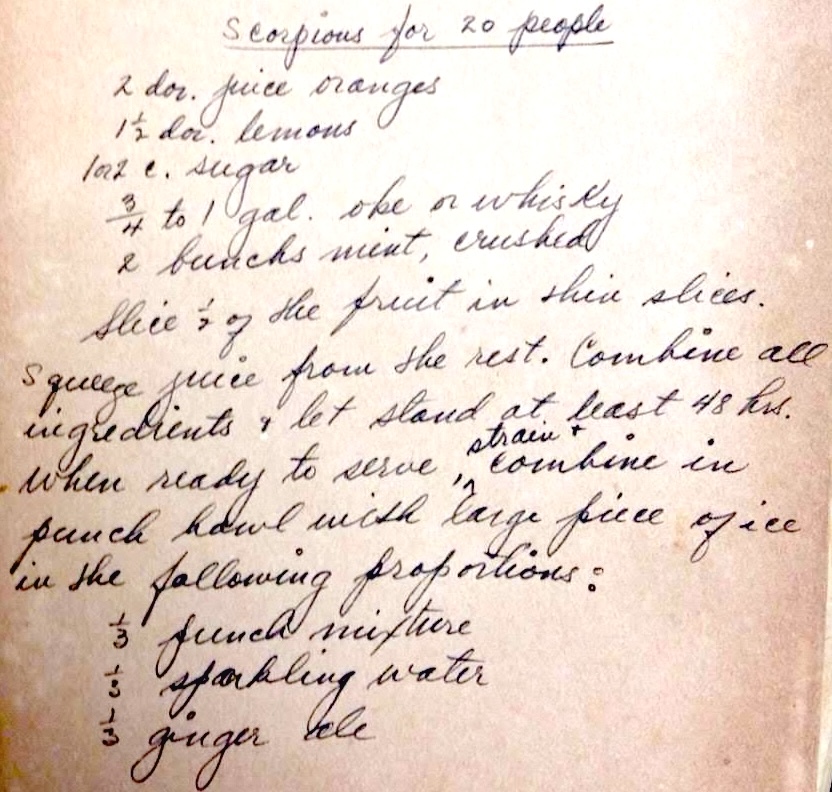 Scorpions for 20 people
2 doz. juice oranges
1½ doz. lemons
1 or 2 c. sugar
¾ to 1 gal. oke or whisky
2 bunchs mint, crushed
Slice ½ of the fruit in thin slices.
Squeeze juice from the rest. Combine all
ingredients & let stand at least 48 hrs.
strain +
When ready to serve, ^ combine in
punch bowl with large piece of ice
in the following proportions:
⅓ punch mixture
⅓ sparkling water
⅓ ginger ale